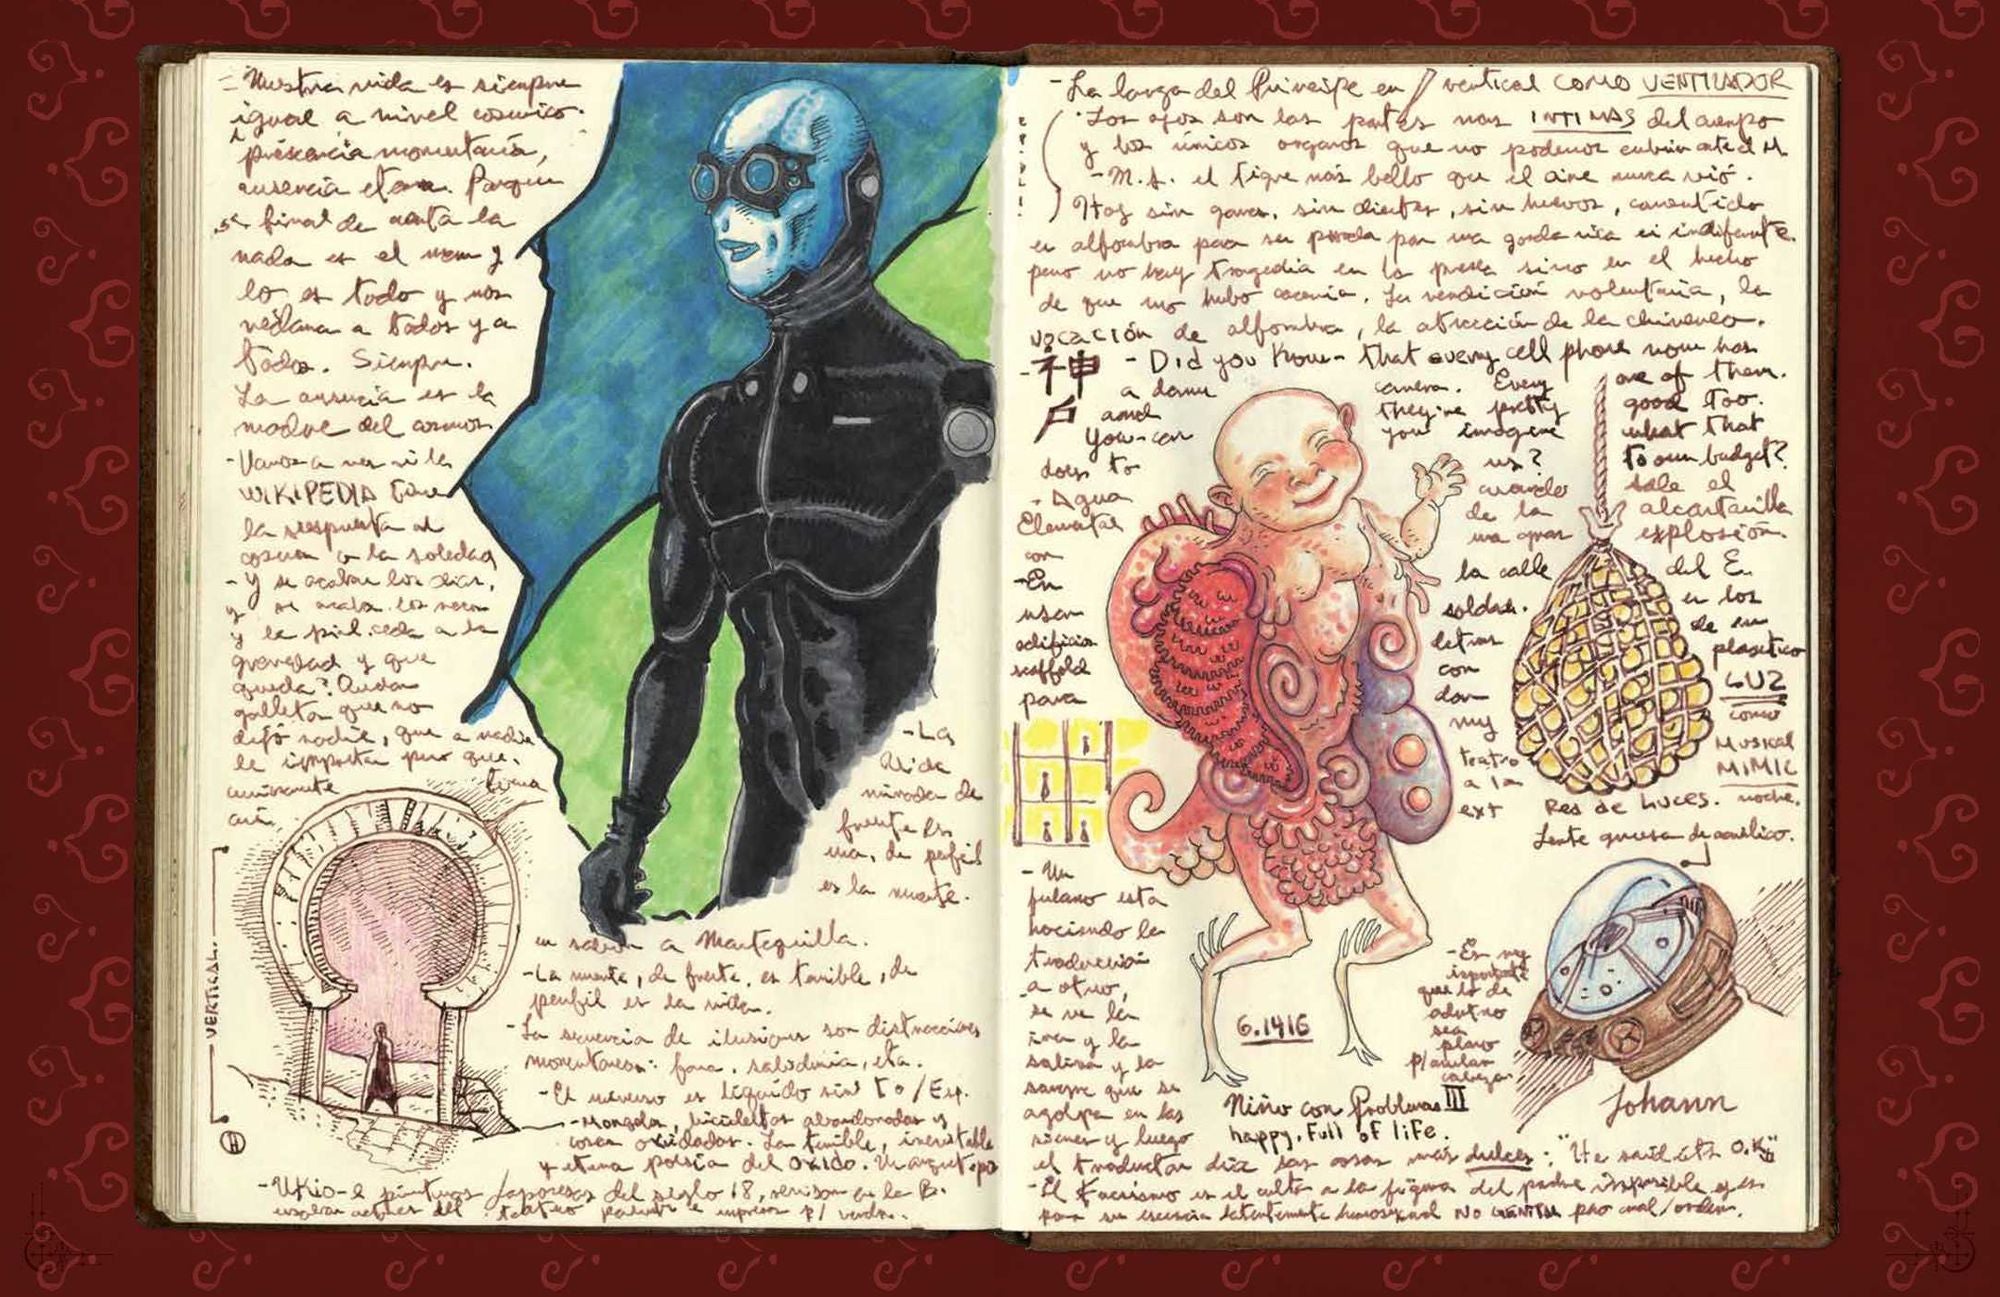 - Nuestra vida es siempre
igual a nivel cosmico.
presencia momentanea,
ausencia eterna. Porque
al final de cuenta la
nada es el mem y
lo es todo y nos
reclama a todos y a
todo. Siempre.
La ausencia es la
madre del cosmos.
- Vamos a ver si la
WIKIPEDIA tiene
la respuesta al
cosmos o la soledad
- Y se acaban los días,
y se acaba
y la piel ceda a la
gravedad y que
queda?
galleta que no
dejó nadie, que a nadie
le importa pero que.
VERTICAL.
- La
vida
mirada de
frente es
una, de perfil
es la muerte.
en sabor a Mantequilla.
- La muerte, de frente, es terrible, de
perfil es la vida.
- La secuencia de ilusiones son distracciones
momentaneas: fama, sabiduria, etc.
- El universo es liquido sin T o / Esp.
- Mongolia, bicicletas abandonadas y
cosas oxidadas. La terrible, inevitable
y eterna poesia del oxido.
- Ukio-e pinturas Japonesas del siglo 18,
- La larga del Principe en // vertical COMO VENTILADOR
Los ojos son las partes mas INTIMAS del cuerpo
y los únicos organos que no podemos cubrir ante el M.
- M.S. el tigre más bello que el aire nunca vió.
Hoy sin garras, sin dientes, sin huevos, convertido
en alfombra para ser pisada por una gorda rica e indiferente.
pero no hay tragedia en la presa sino en el hecho
de que no hubo cacería. La rendición voluntaria, la
vocación de alfombra, la atracción de la chimenea.
神 - Did you know - that every cell phone now has
戶 a damn camera. Every one of them.
and they're pretty good too.
You can imagine what that
does to us? to our budget?
- Agua cuando sale el
Elemental de la alcantarilla
con una gran explosión.
- En la calle del E.
usar soldar. en los
edificios letras de en
scaffold con plastico
para dar LUZ
my como
teatro MUSICAL
a la MIMIC
ext noche.
RED DE LUCES.
Lente gruesa de acrilico.
- Un
fulano esta
haciendo la
traducción
a otro,
se ve la
ira y la
saliva y la
sangre que se
agolpa en las
sienes y luego
el traductor dice las cosas más dulces: "He said it's O.K."
6.1416
Niño con Problemas III
happy. Full of life.
- Es muy
importante
que lo de
adentro
sea
plano
p/
cabeza.
Johann
- El Fascismo es el culto a la figura del padre imposible y es
para su esencia latentemente homosexual NO GENITAL pro cual/orden.